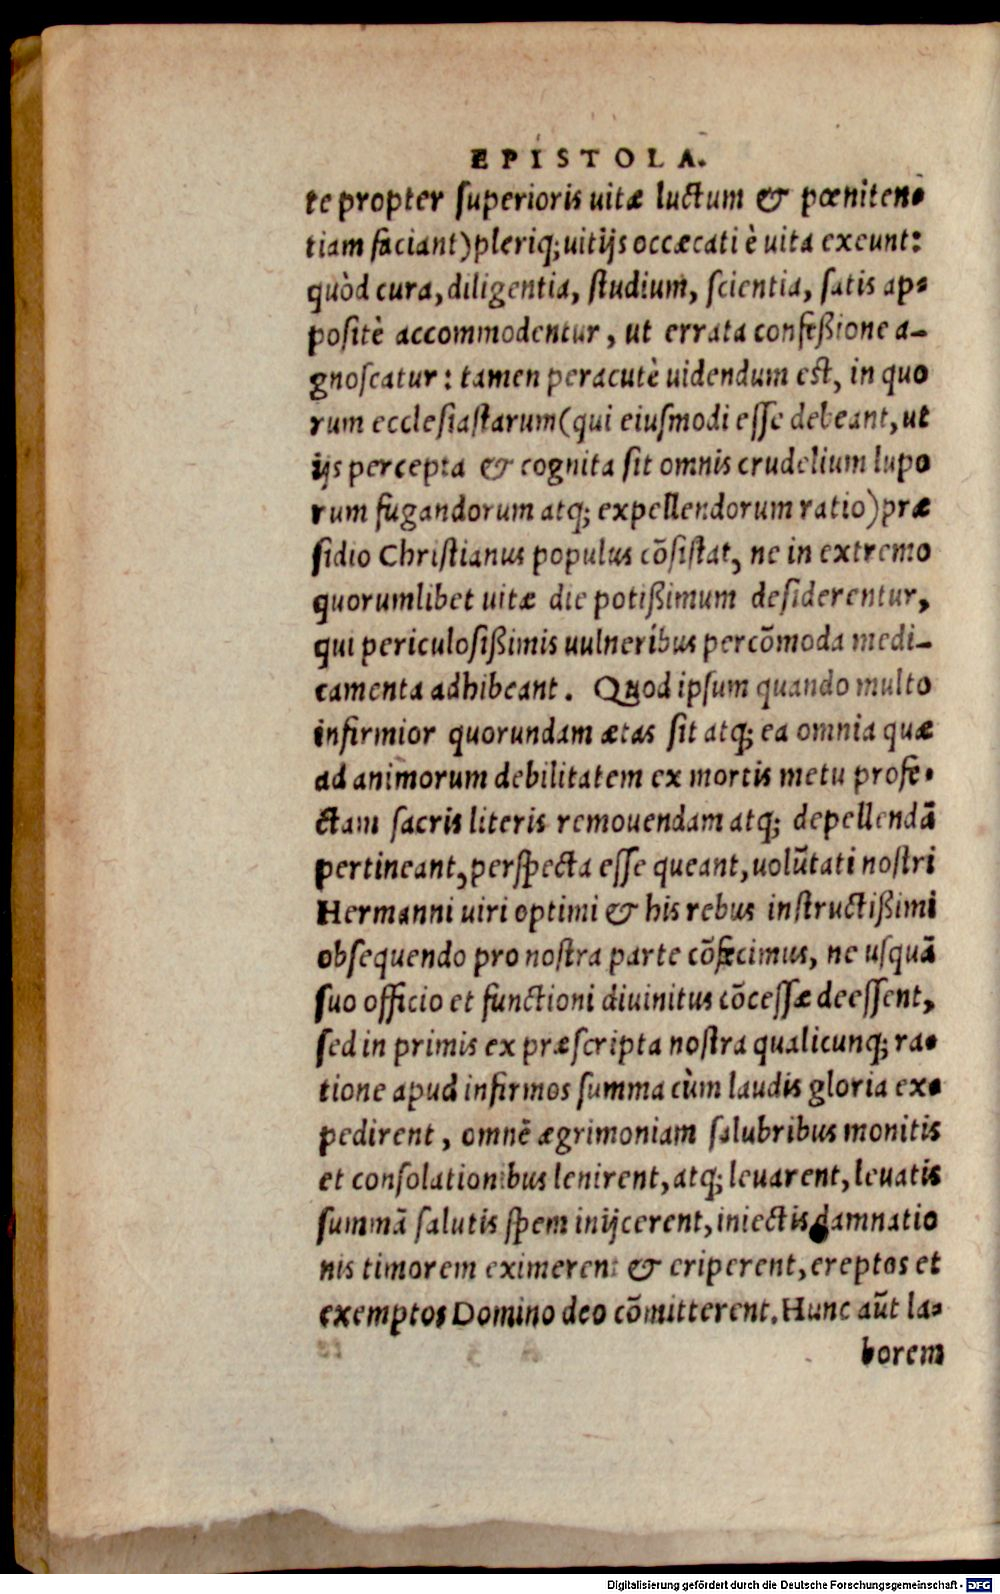 EPISTOLA.
te propter superioris uitæ luctum & pœniten-
tiam faciant) pleriq; uitijs occæcati è uita exeunt:
quòd cura, diligentia, studium, scientia, satis ap-
positè accommodentur, ut errata confeßione a-
gnoscatur: tamen peracutè uidendum est, in quo
rum ecclesiastarum (qui eiusmodi esse debeant, ut
ijs percepta & cognita sit omnis crudelium lupo
rum fugandorum atq; expellendorum ratio) præ
sidio Christianus populus cõsistat, ne in extremo
quorumlibet uitæ die potißimum desiderentur,
qui periculosißimis uulneribus percõmoda medi-
camenta adhibeant. Quod ipsum quando multo
infirmior quorundam ætas sit atq; ea omnia quæ
ad animorum debilitatem ex mortis metu profe-
ctam sacris literis remouendam atq; depellendã
pertineant, perspecta esse queant, uolũtati nostri
Hermanni uiri optimi & his rebus instructißimi
obsequendo pro nostra parte cõfecimus, ne usquã
suo officio et functioni diuinitus cõcessæ deessent,
sed in primis ex præscripta nostra qualicunq; ra-
tione apud infirmos summa cùm laudis gloria ex-
pedirent, omnẽ ægrimoniam salubribus monitis
et consolationibus lenirent, atq; leuarent, leuatis
summã salutis spem inijcerent, iniectis damnatio
nis timorem eximerent & eriperent, ereptos et
exemptos Domino deo cõmitterent. Hunc aũt la-
borem
Digitalisierung gefördert durch die Deutsche Forschungsgemeinschaft - DFG